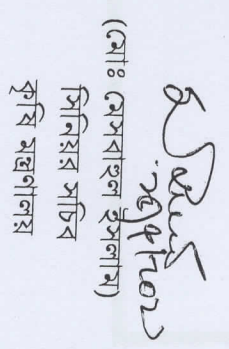 (মোঃ মেসবাহুল ইসলাম)
সিনিয়র সচিব
কৃষি মন্ত্রণালয়